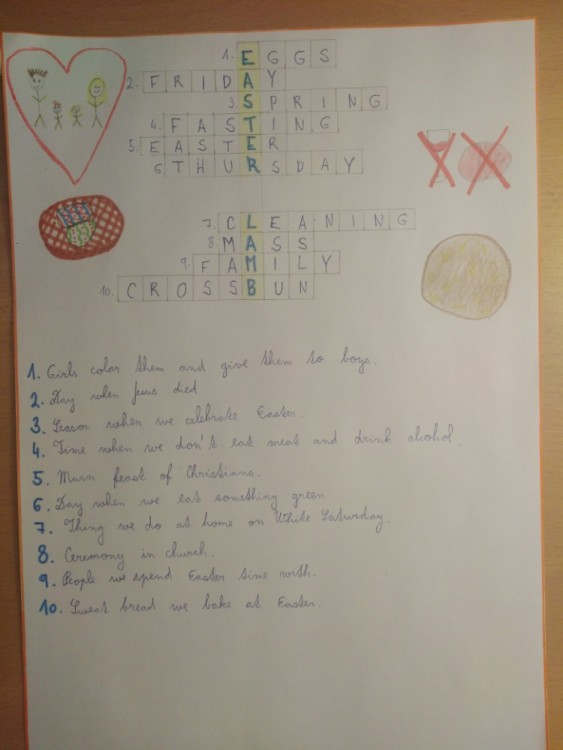 1. EGGS
2. FRIDAY
3. SPRING
4. FASTING
5. EASTER
6. THURSDAY
7. CLEANING
8. MASS
9. FAMILY
10. CROSSBUN
1. Girls color them and give them to boys.
2. Day when Jesus died.
3. Season when we celebrate Easter.
4. Time when we don't eat meat and drink alcohol.
5. Main feast of Christians.
6. Day when we eat something green
7. Thing we do at home on White Saturday.
8. Ceremony in church.
9. People we spend Easter time with.
10. Sweat bread we bake at Easter.